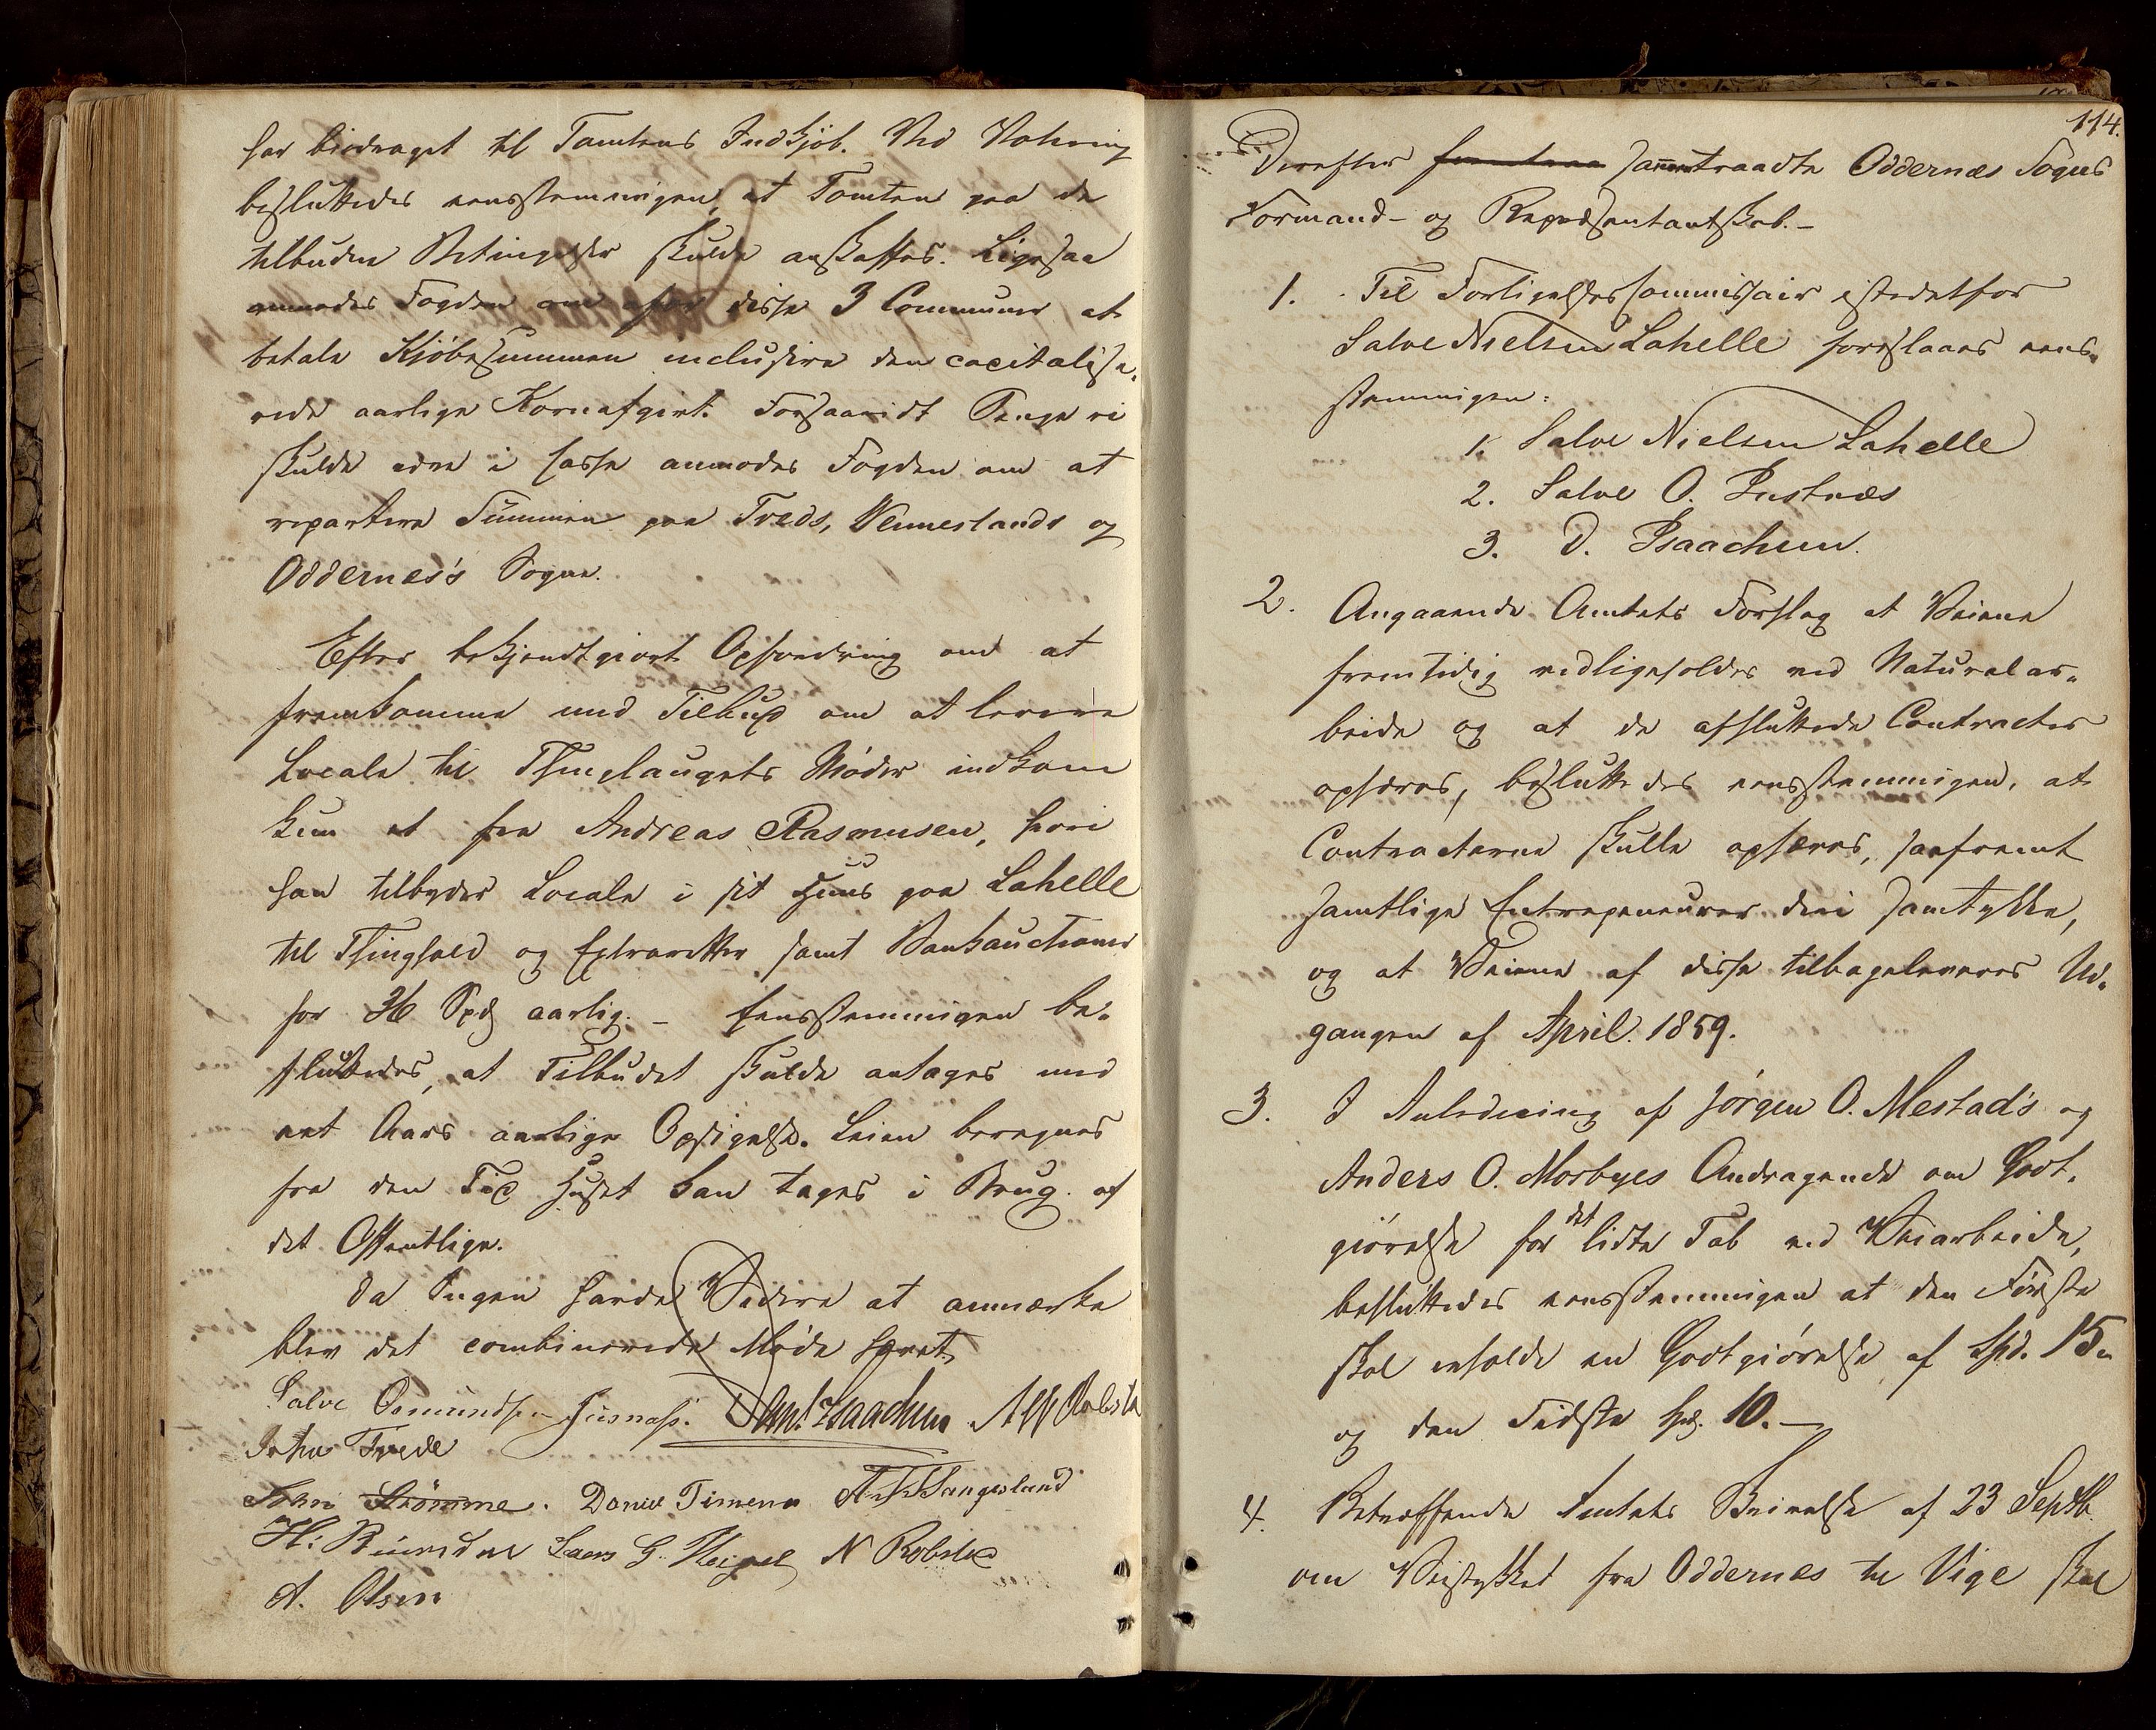 har bidraget til Tomtens Indkjøb. Ved Votering
besluttedes eensstemmigen, at Tomten paa de
tilbudne Betingelser skulde anskaffes. Ligesaa
anmodes Fogden om disse 3 Communer at
betale Kjøbesummen inclusive den capitalise-
rede aarlige Kornafgivt. Forsaavidt Penge ei
skulde være i Casse anmodes Fogden om at
repartere Summen paa Tveds, Vennerlands og
Oddernes's Sogne.
Efter bekjendtgiort Opfordring om at
fremkomme med Tilbud om at levere
Locale til Thinglaugets Møder indkom
kun et fra Andreas Rasmusen, hvori
han tilbyder Locale i sit Huus paa Lahelle
til Thinghold og Extraretter samt Auctioner
for 36 Spd aarlig. – Eensstemmigen be-
sluttedes, at Tilbudet skulde antages med
eet Aars aarlige Opsigelse. Leien beregnes
fra den Tid Huset kan tages i Brug af
det Offentlige.
Da Ingen havde Videre at anmærke
blev det combinerede Møde hævet.
Salve Osmundsen Danl Isaachsen
John Tvede
John Strömme. Daniel Timenes
Lars G.
A. Olsen
114.
Derefter sammentraadte Oddernæs Sognes
Formand- og Repræsentantskab. –
1. Til Forligelsescommissair istedetfor
Salve Nielsen Lahelle foreslaaes eens-
stemmigen:
1. Salve Nielsen Lahelle
2. Salve O. Justnæs
3. D. Isaachsen.
2. Angaaende Amtets Forslag at Veiene
fremtidig vedligeholdes ved Naturalar-
beide og at de afsluttede Contracter
ophæves, besluttedes eensstemmigen, at
Contracterne skulle ophæves, saafremt
samtlige Entrepeneurer deri samtykke,
og at Veiene af disse tilbageleveres Ud-
gangen af April 1859.
3. I Anledning af Jörgen O. Mestad's og
Anders O. Mosbyes Andragende om Godt-
giørelse for det lidte Tab ved Veiarbeide,
besluttedes eensstemmigen at den Første
skal erholde en Godtgiørelse af Spd. 15.
og den Sidste Spd. 10. –
4. Betreffende Amtets Skrivelse af 23 Septb.
om Veistykket fra Oddernes til Vige skal